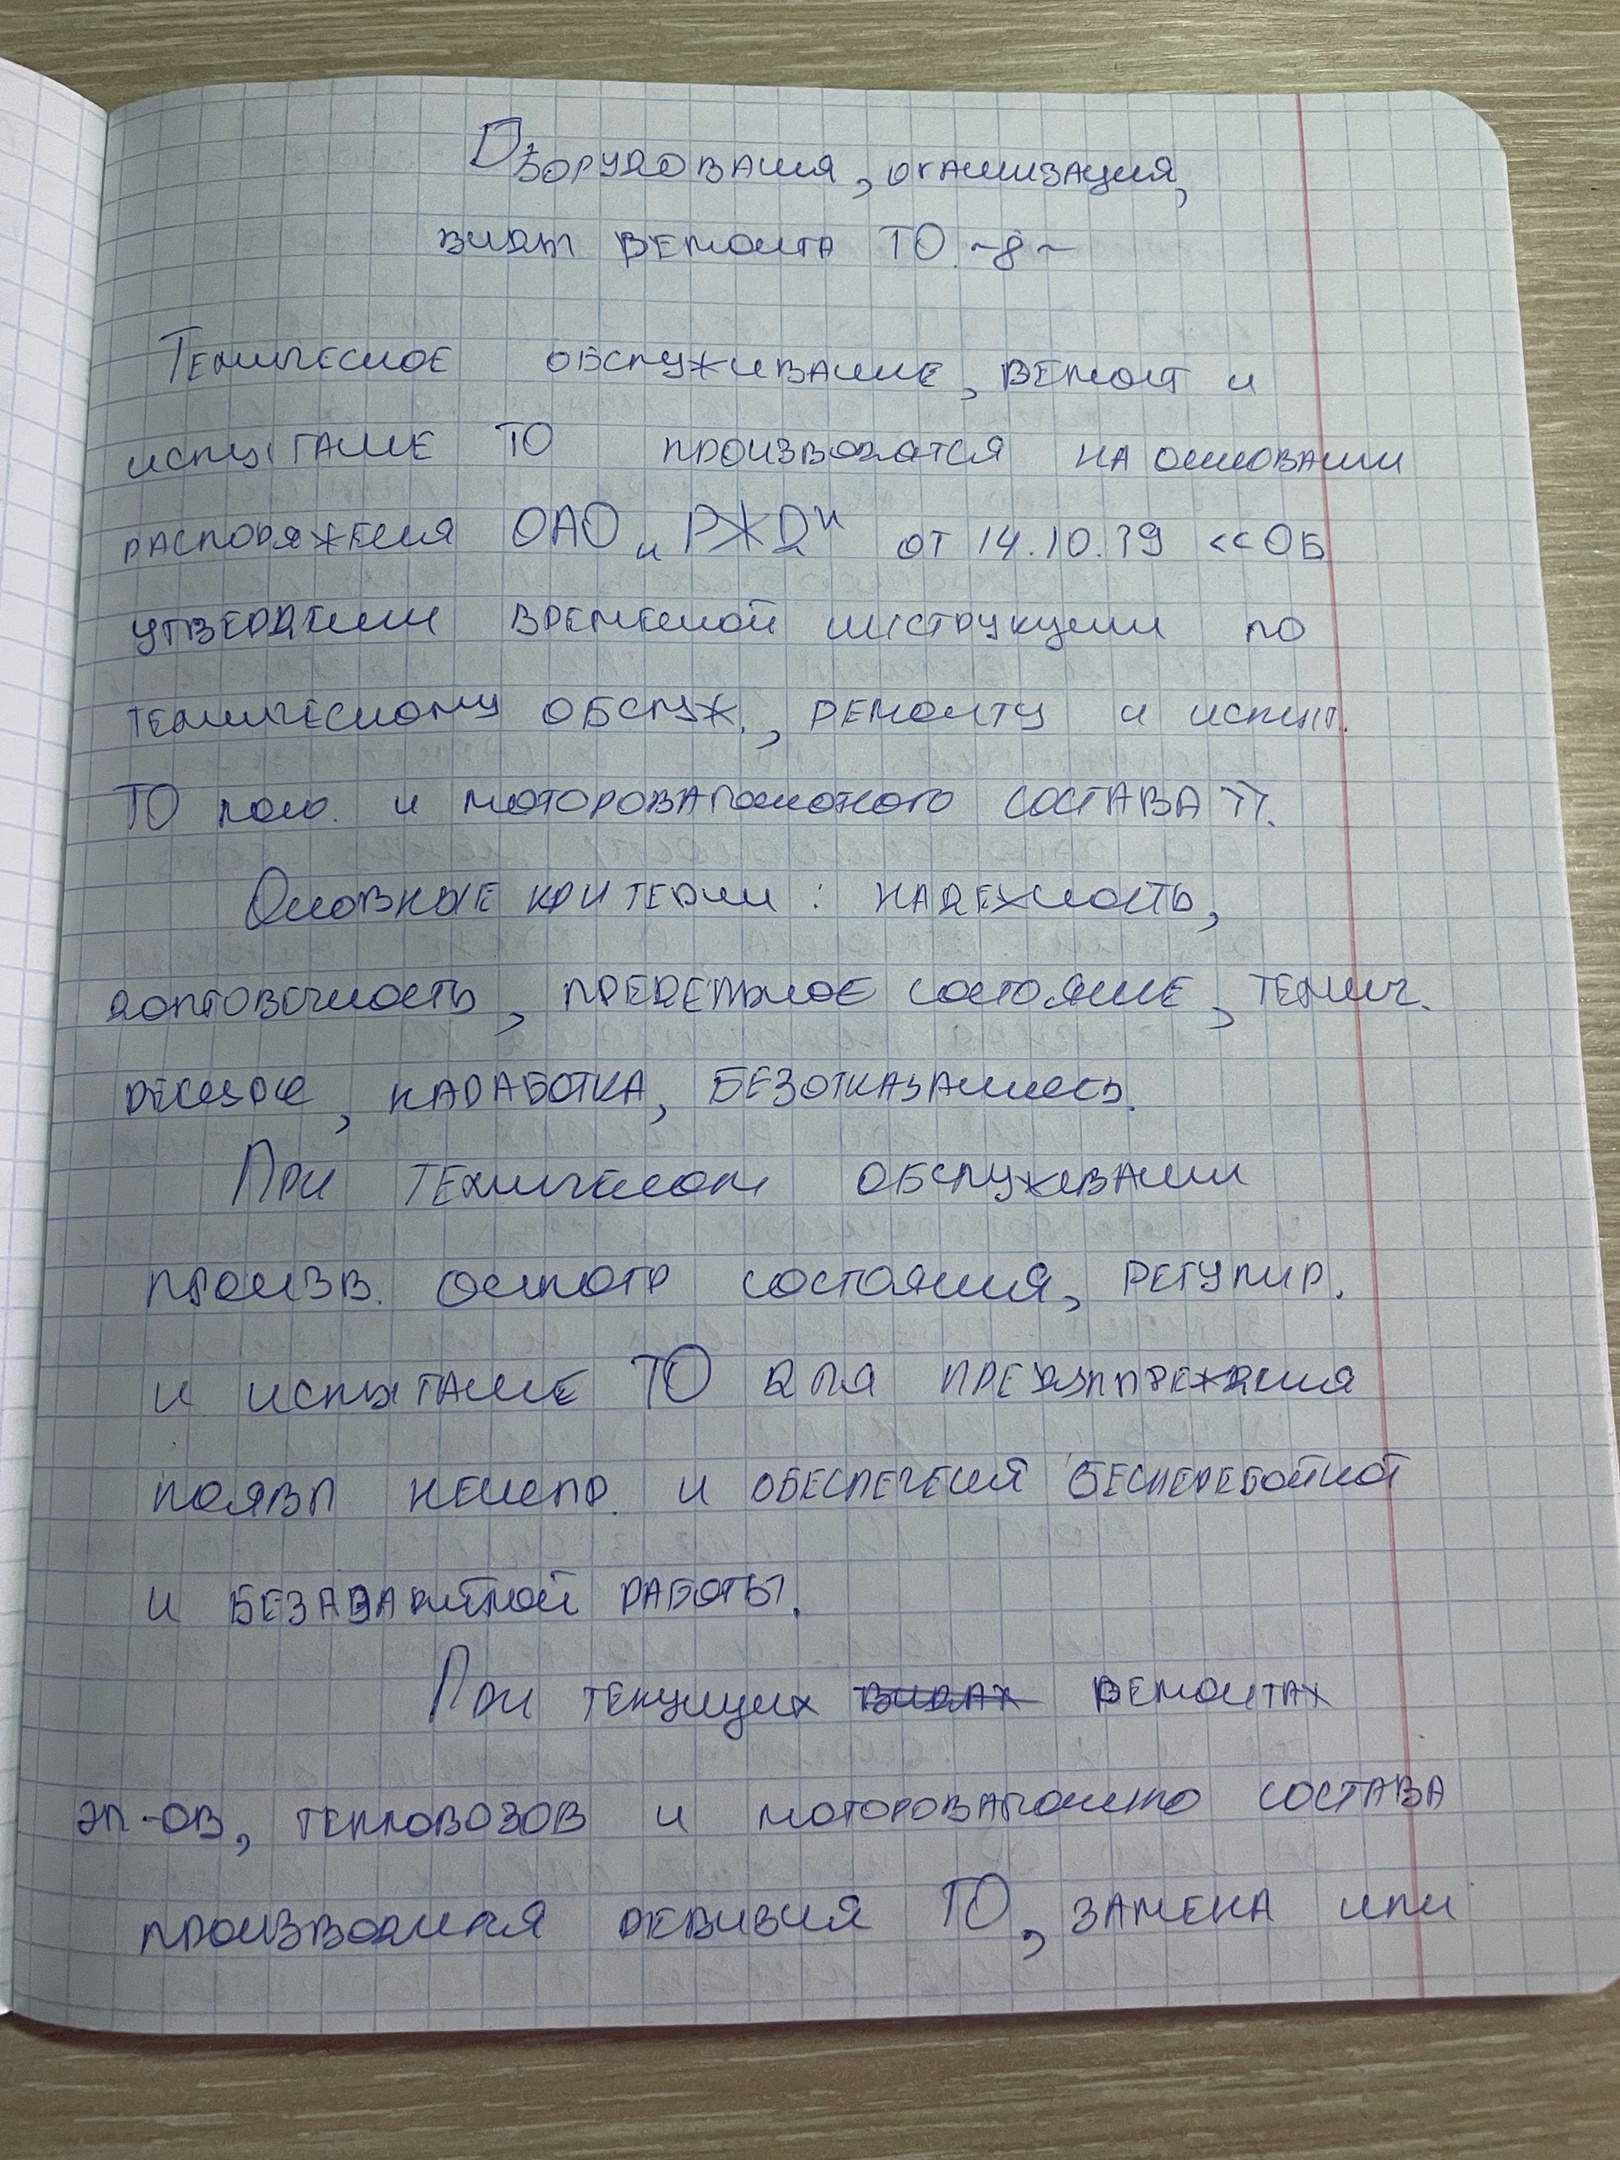 Оборудования, оганизация,
виды ремонта ТО. ~8~
Техническое обслуживание, ремонт и
испытание ТО производятся на основании
распоряжения ОАО „РЖД" от 14.10.19 <<Об
утверждении временной инструкции по
техническому обслуж., ремонту и испыт.
ТО локо. и моторовагонного состава>>.
Основные критерии: надежность,
долговечность, предельное состояние, технич.
ресурс, наработка, безотказанность.
При техническом обслуживании
произв. осмотр состояния, регулир.
и испытание ТО для предупреждения
появл неиспр. и обеспечения бесперебойной
и безаварийной работы.
При текущих видах ремонтах
эл-ов, тепловозов и моторовагонно состава
производится ревизия ТО, замена или